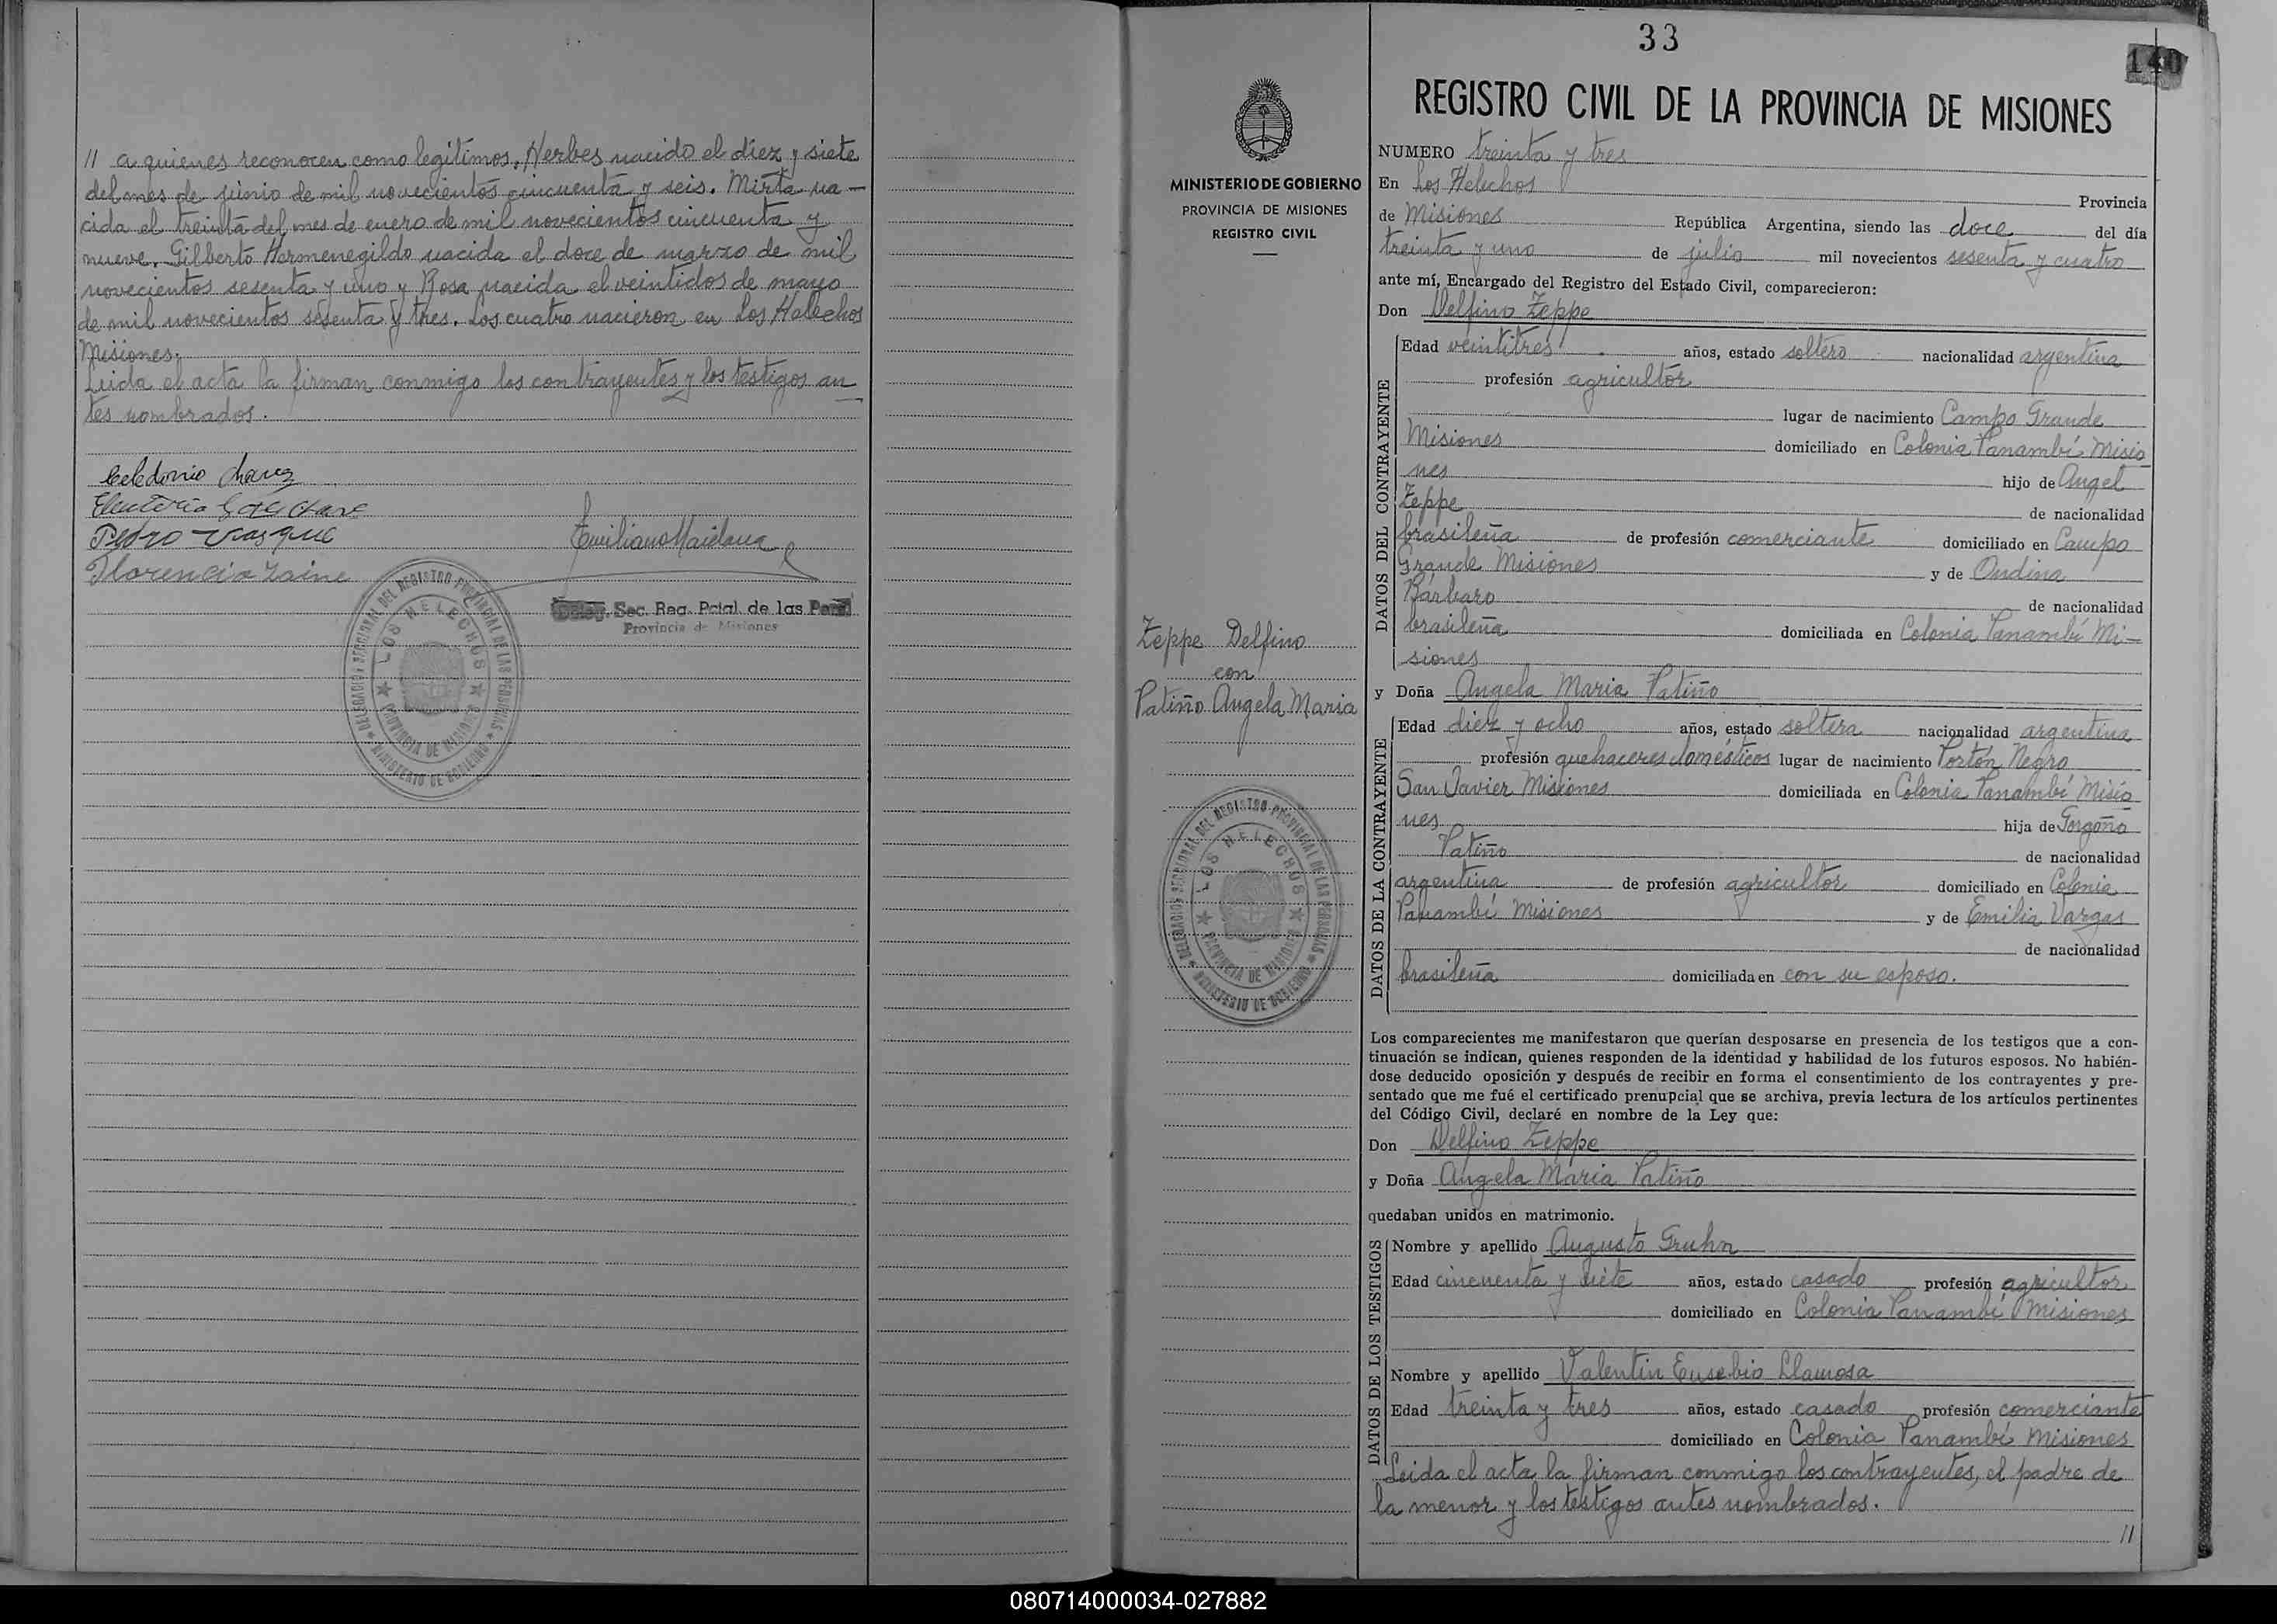 // a quienes reconocen como legítimos. Herbes nacido el diez y siete
del mes de junio de mil novecientos cincuenta y seis. Mirta na-
cida el treinta del mes de enero de mil novecientos cincuenta y
nueve. Gilberto Hermenegildo nacida el doce de marzo de mil
novecientos sesenta y uno y Rosa nacida el veintidos de mayo
de mil novecientos sesenta y tres. Los cuatro nacieron en Los Helechos
Misiones.
Leida el acta la firman conmigo los contrayentes y los testigos an
tes nombrados.
Celedonio Chavez
Pedro Vasque
Emiliano Maidana
Florencia Zaine
Deleg. Sec. Reg. Pcial. de las Pers.
Provincia de Misiones
DELEGACION SECCIONAL DEL REGISTRO PROVINCIAL DE LAS PERSONAS
LOS HELECHOS
PROVINCIA DE MISIONES
MINISTERIO DE GOBIERNO
33
140
REGISTRO CIVIL DE LA PROVINCIA DE MISIONES
MINISTERIO DE GOBIERNO
PROVINCIA DE MISIONES
REGISTRO CIVIL
Zeppe Delfino
con
Patiño Angela Maria
DELEGACION SECCIONAL DEL REGISTRO PROVINCIAL DE LAS PERSONAS
LOS HELECHOS
PROVINCIA DE MISIONES
MINISTERIO DE GOBIERNO
NUMERO treinta y tres
En Los Helechos Provincia
de Misiones República Argentina, siendo las doce del día
treinta y uno de julio mil novecientos sesenta y cuatro
ante mí, Encargado del Registro del Estado Civil, comparecieron:
Don Delfino Zeppe
DATOS DEL CONTRAYENTE
Edad veintitres años, estado soltero nacionalidad argentina
profesión agricultor
lugar de nacimiento Campo Grande
Misiones domiciliado en Colonia Panambí Misio
nes hijo de Angel
Zeppe de nacionalidad
brasileña de profesión comerciante domiciliado en Campo
Grande Misiones y de Ondina
Bárbaro de nacionalidad
brasileña domiciliada en Colonia Panambí Mi-
siones
y Doña Angela Maria Patiño
DATOS DE LA CONTRAYENTE
Edad diez y ocho años, estado soltera nacionalidad argentina
profesión quehaceres domésticos lugar de nacimiento Portón Negro
San Javier Misiones domiciliada en Colonia Panambí Misio
nes hija de Gorgoño
Patiño de nacionalidad
argentina de profesión agricultor domiciliado en Colonia
Panambí Misiones y de Emilia Vargas
de nacionalidad
brasileña domiciliada en con su esposo.
Los comparecientes me manifestaron que querían desposarse en presencia de los testigos que a con-
tinuación se indican, quienes responden de la identidad y habilidad de los futuros esposos. No habién-
dose deducido oposición y después de recibir en forma el consentimiento de los contrayentes y pre-
sentado que me fué el certificado prenupcial que se archiva, previa lectura de los artículos pertinentes
del Código Civil, declaré en nombre de la Ley que:
Don Delfino Zeppe
y Doña Angela Maria Patiño
quedaban unidos en matrimonio.
DATOS DE LOS TESTIGOS
Nombre y apellido Augusto Gruhn
Edad cincuenta y siete años, estado casado profesión agricultor
domiciliado en Colonia Panambí Misiones
Nombre y apellido Valentin Eusebio Llamosa
Edad treinta y tres años, estado casado profesión comerciante
domiciliado en Colonia Panambí Misiones
Leida el acta la firman conmigo los contrayentes, el padre de
la menor y los testigos antes nombrados.
//
080714000034-027882